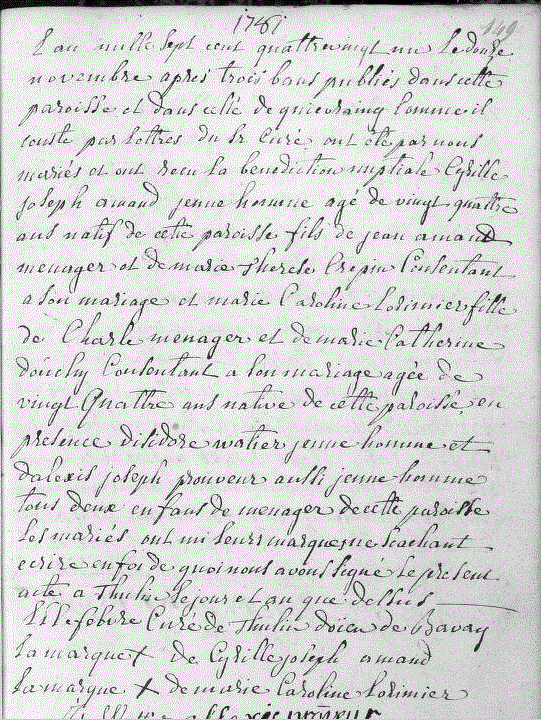 1781
149
L'an mille sept cent quattrevingt un le douze
novembre apres trois bans publiés dans cette
paroisse et dans celle de quievraing comme il
conste par lettres du Sr Curé ont été par nous
mariés et ont recu la benediction nuptiale Cyrille
joseph amand jeune homme agé de vingt quattre
ans natif de cette paroisse fils de jean amand
menager et de marie therese Crepin Consentant
a son mariage et marie Caroline Lorimier fille
de Charle menager et de marie Catherine
douchy Consentant a son mariage agée de
vingt Quattre ans native de cette paroisse, en
presence disidore watier jeune homme et
dalexis joseph prouveur aussi jeune homme
tous deux enfans de menager de cette paroisse
Les mariés ont mi leurs marques ne scachant
ecrire en foi de quoi nous avons signé le present
acte a Thulin le jour et an que dessus
L Lefebvre Curé de Thulin doien de Bavay
la marque X de Cyrille joseph amand
la marque X de marie Caroline Lorimier